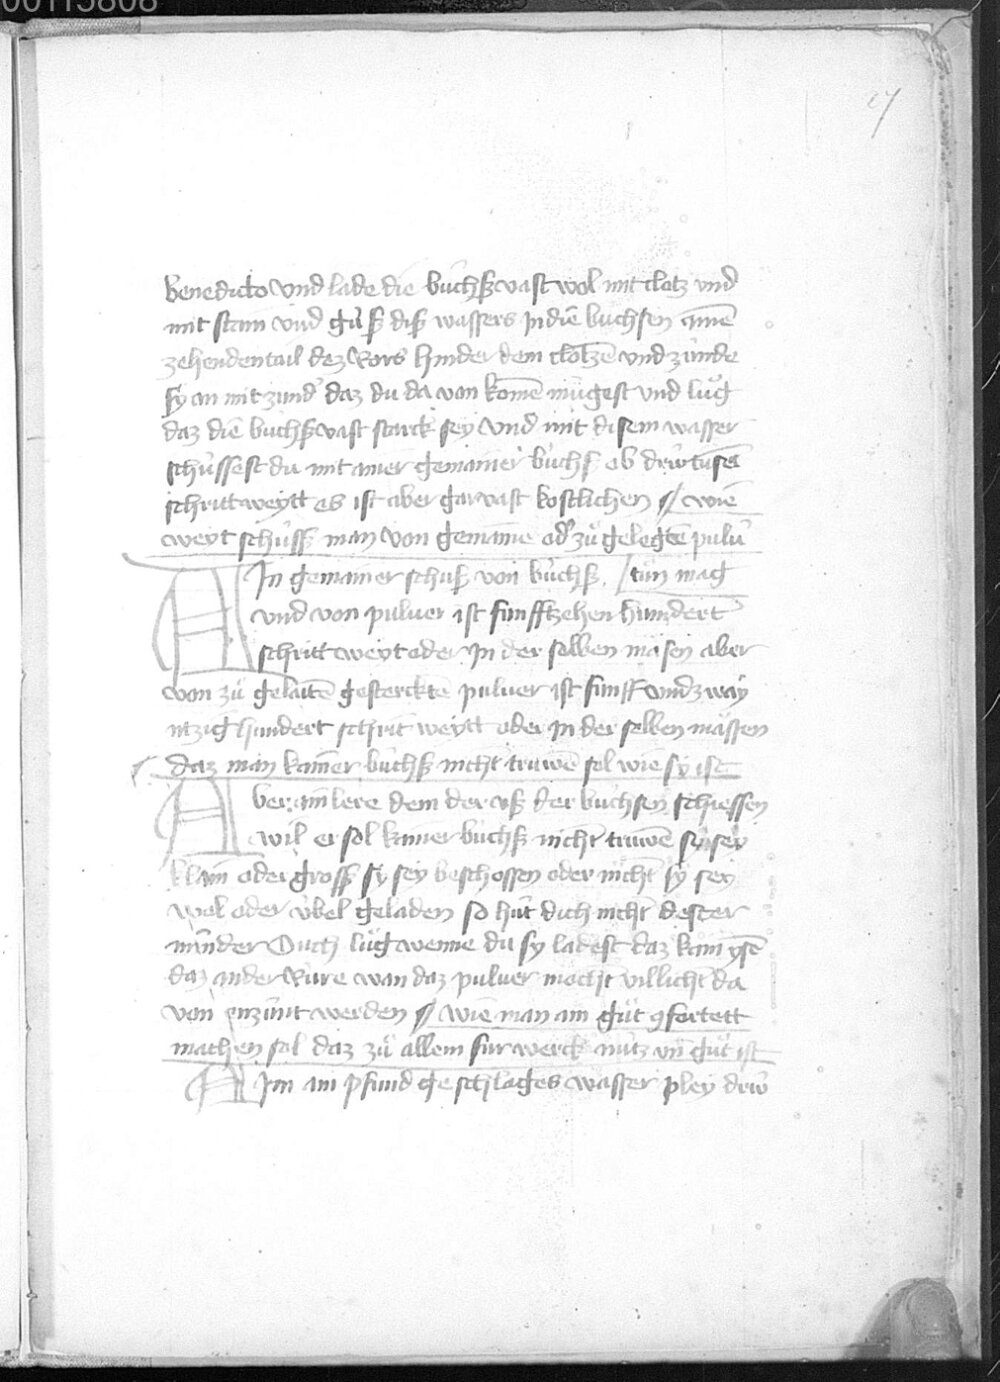 00115808
27
benedicto vnd lade die bůchß vast wol mit clotz vnd
mit stain vnd gůß diß wassers jn die buchsen ainē
zehenden tail dez Rors hinder dem clotzen vnd zünde
sy an mit zünd daz du da von komē mügest vnd lůg
daz die buchß vast starck sey vnd mit disem wasser
schüssest du mit ainer gemainer büchß ob drw tusēt
schritt weytt es ist aber gar vast kostlichen wie
weyt schüss man von gemaine od' zů gelegtē puluer
Ain gemainer schuß von büchß tün mag
vnd von puluer ist funfftzehen hundert
schritt weyt oder jn der selben mäsen aber
von zů gelaitē gesterckten puluer ist funff vnd zway
ntzig hundert schrit weytt oder in der selben mässen
daz man kamer büchß nicht truwē sol wie sy ist
Aber ain lere dem der vß der buchsen schiessen
wil er sol kamer büchß nicht truwē sy sey
klain oder gross sy sey beschossen oder nicht sy sey
wol oder übel geladen so hůt dich nicht dester
minder Ouch lůg wenne du sy ladest daz kain ysē
daz ander Rüre wan daz puluer möcht villicht da
von enzünt werden wie man ain gůt 9fortett
machen sol daz zů allem furwerck nütz vn̄ gůt ist
Nim ain pfund geschlages wasser pley drw